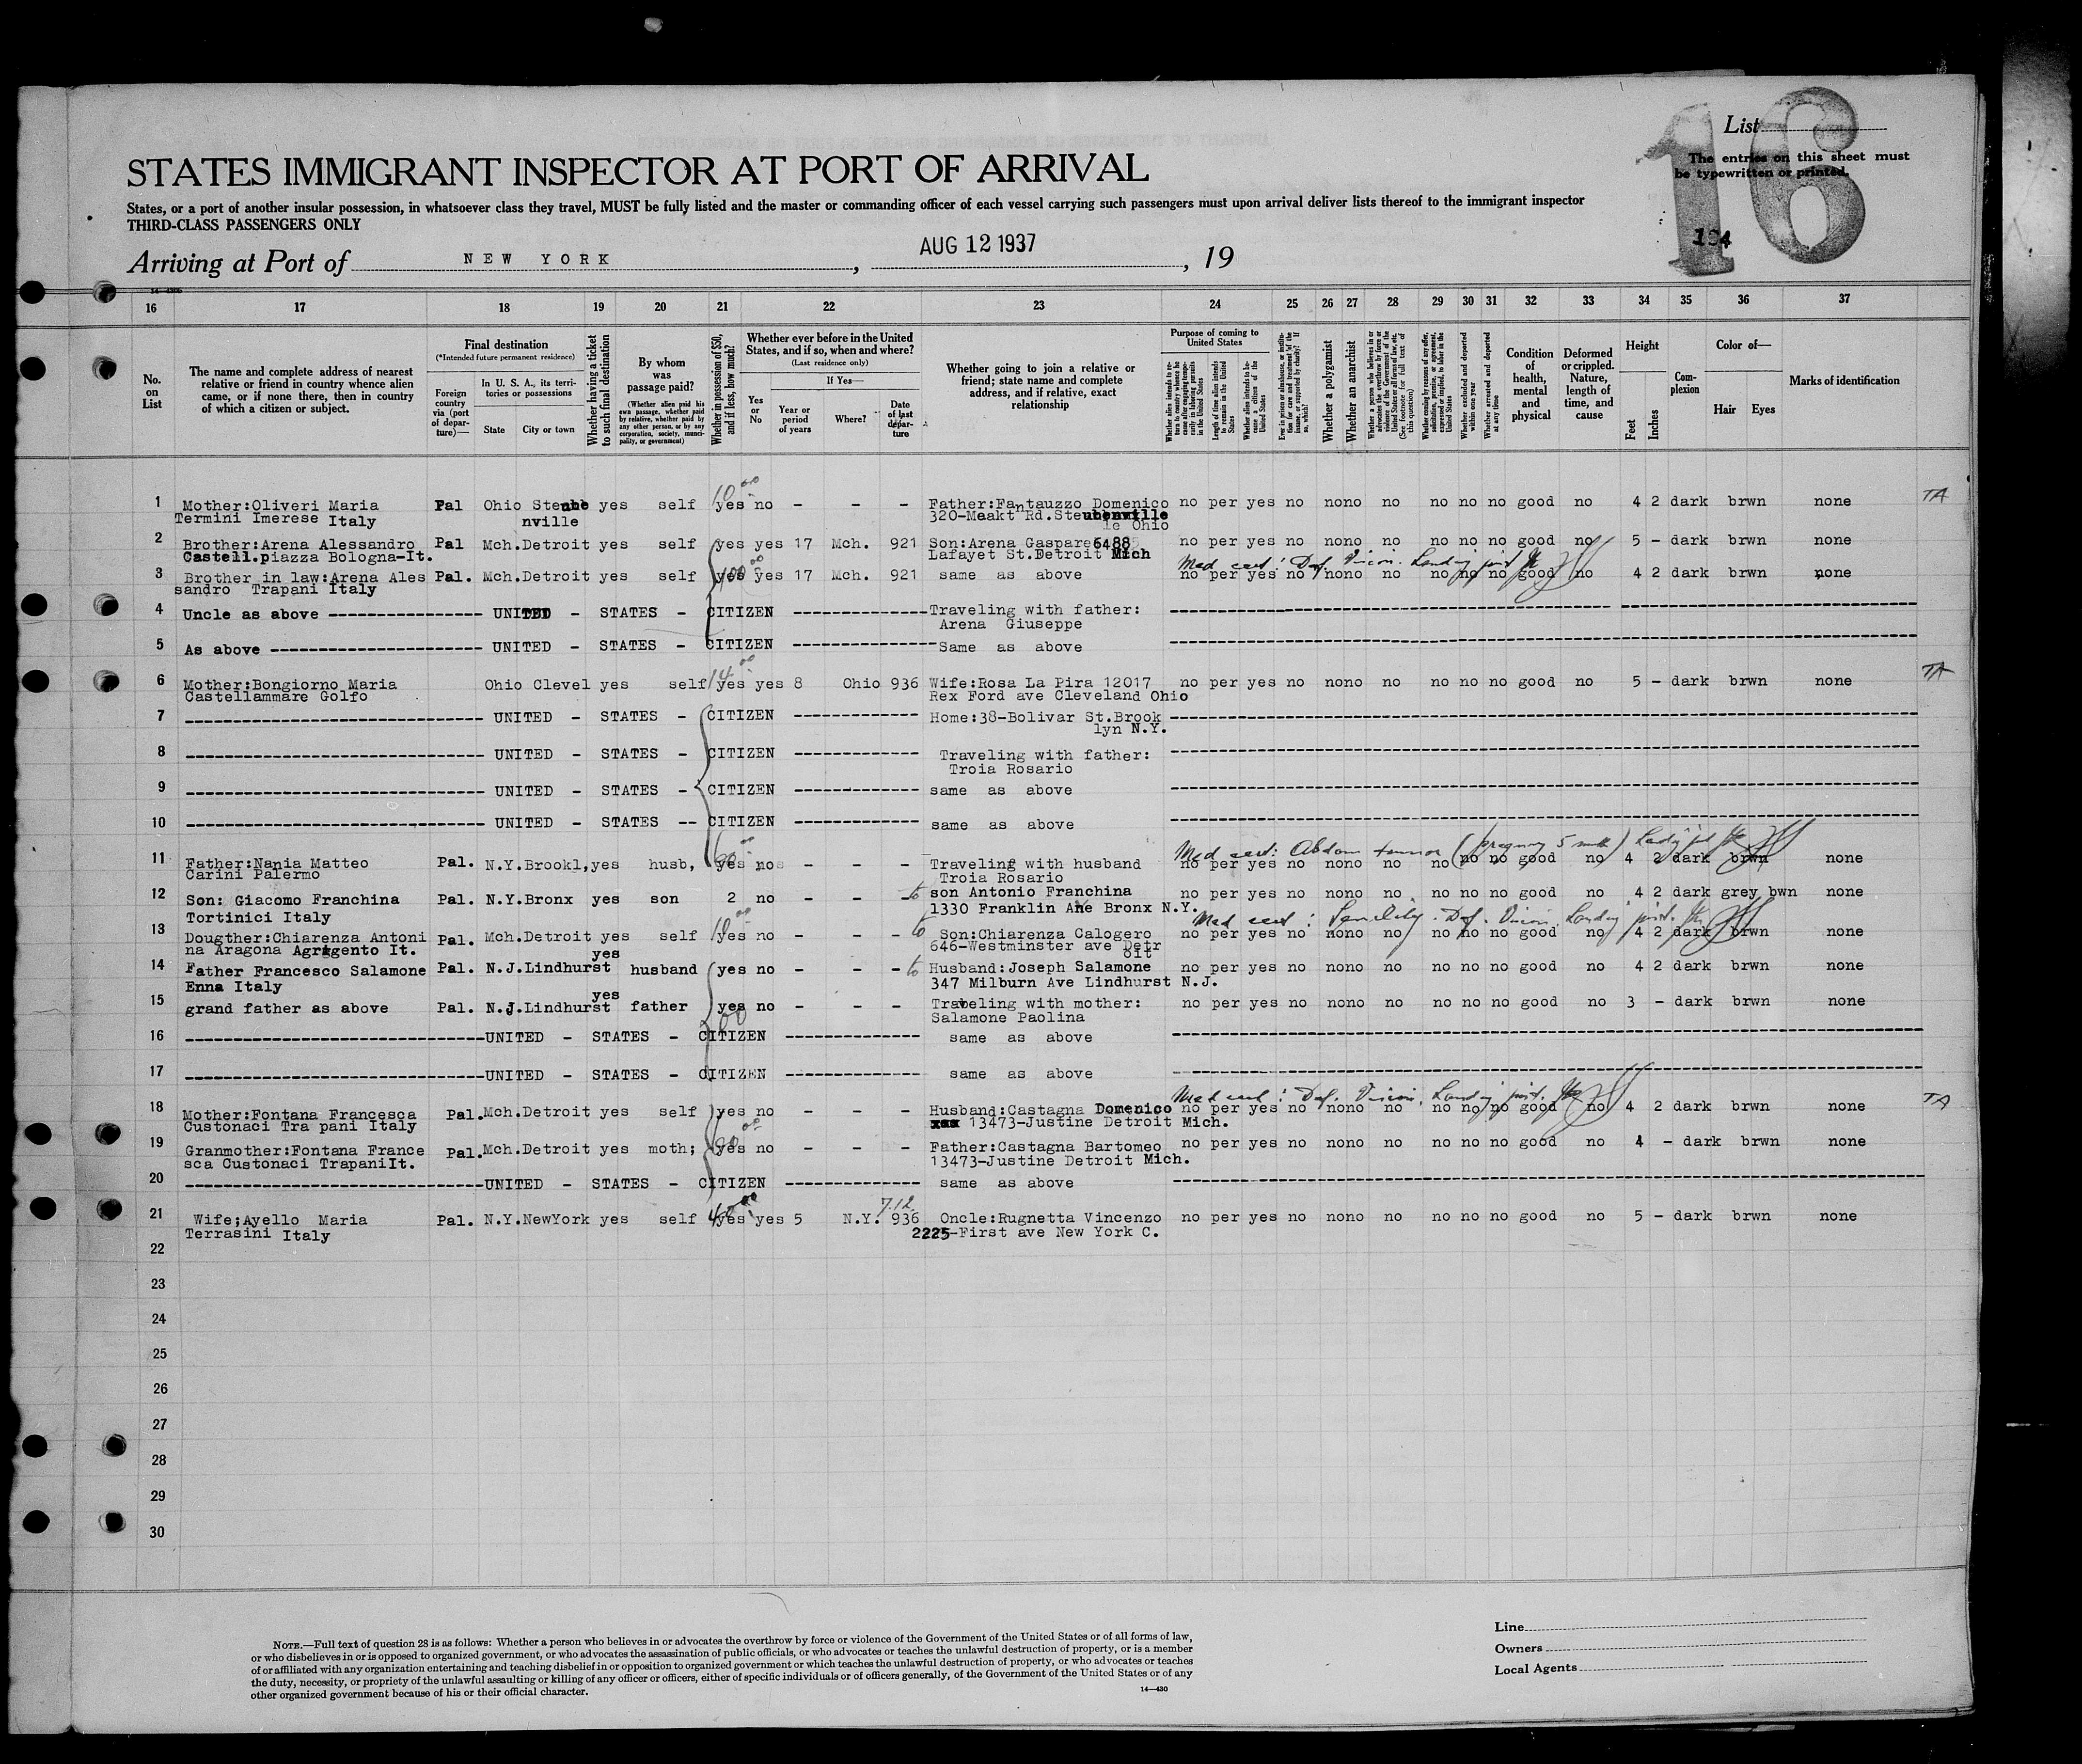 List
16
The entries on this sheet must
be typewritten or printed.
194
STATES IMMIGRANT INSPECTOR AT PORT OF ARRIVAL
States, or a port of another insular possession, in whatsoever class they travel, MUST be fully listed and the master or commanding officer of each vessel carrying such passengers must upon arrival deliver lists thereof to the immigrant inspector
THIRD-CLASS PASSENGERS ONLY
Arriving at Port of NEW YORK, AUG 12 1937, 19
16 17 18 19 20 21 22 23 24 25 26 27 28 29 30 31 32 33 34 35 36 37
No. on List
The name and complete address of nearest relative or friend in country whence alien came, or if none there, then in country of which a citizen or subject.
Final destination
(*Intended future permanent residence)
Foreign country via (port of departure)—
In U. S. A., its territories or possessions
State City or town
Whether having a ticket to such final destination
By whom was passage paid?
(Whether alien paid his own passage, whether paid by relative, whether paid by any other person, or by any corporation, society, municipality, or government)
Whether in possession of $50, and if less, how much?
Whether ever before in the United States, and if so, when and where?
(Last residence only)
If Yes—
Yes or No
Year or period of years
Where?
Date of last departure
Whether going to join a relative or friend; state name and complete address, and if relative, exact relationship
Purpose of coming to United States
Length of time alien intends to remain in the United States
Whether alien intends to become a citizen of the United States
Whether a polygamist
Whether an anarchist
Whether excluded and deported within one year
Whether arrested and deported at any time
Condition of health, mental and physical
Deformed or crippled. Nature, length of time, and cause
Height
Feet Inches
Complexion
Color of—
Hair Eyes
Marks of identification
1 Mother:Oliveri Maria Pal Ohio Steube yes self 10.00 yes no - - - Father:Fantauzzo Domenico no per yes no nono no no no no good no 4 2 dark brwn none TA
Termini Imerese Italy nville 320-Maakt Rd.Steubenville
le Ohio
2 Brother:Arena Alessandro Pal Mch.Detroit yes self yes yes 17 Mch. 921 Son:Arena Gaspare 6488 no per yes no nono no no no no good no 5 - dark brwn none
Castell.piazza Bologna-It. Lafayet St.Detroit Mich
Med cert: Def. Vision. Landing
3 Brother in law:Arena Ales Pal. Mch.Detroit yes self 100.00 yes yes 17 Mch. 921 same as above no per yes no nono no no no no good no 4 2 dark brwn none
sandro Trapani Italy
4 Uncle as above ---------- UNITED - STATES - CITIZEN ---------- Traveling with father:
Arena Giuseppe
5 As above ---------- UNITED - STATES - CITIZEN ---------- Same as above
6 Mother:Bongiorno Maria Ohio Clevel yes self 14.00 yes yes 8 Ohio 936 Wife:Rosa La Pira 12017 no per yes no nono no no no no good no 5 - dark brwn none TA
Castellammare Golfo Rex Ford ave Cleveland Ohio
7 ---------- UNITED - STATES - CITIZEN ---------- Home:38-Bolivar St.Brook
lyn N.Y.
8 ---------- UNITED - STATES - CITIZEN ---------- Traveling with father:
Troia Rosario
9 ---------- UNITED - STATES - CITIZEN ---------- same as above
10 ---------- UNITED - STATES -- CITIZEN ---------- same as above
Med cert: Abdom tumor (pregnancy 5 mth)
11 Father:Nania Matteo Pal. N.Y.Brookl,yes husb, 60.00 yes no - - - Traveling with husband no per yes no nono no no no no good no 4 2 dark brwn none
Carini Palermo Troia Rosario
12 Son: Giacomo Franchina Pal. N.Y.Bronx yes son 2 no - - - to son Antonio Franchina no per yes no nono no no no no good no 4 2 dark grey bwn none
Tortinici Italy 1330 Franklin Ave Bronx N.Y.
Med cert: Senility. Def. Vision. Landing
13 Dougther:Chiarenza Antoni Pal. Mch.Detroit yes self 10.00 yes no - - - to Son:Chiarenza Calogero no per yes no nono no no no no good no 4 2 dark brwn none
na Aragona Agrigento It. 646-Westminster ave Detr
oit
14 Father Francesco Salamone Pal. N.J.Lindhurst yes husband yes no - - - to Husband:Joseph Salamone no per yes no nono no no no no good no 4 2 dark brwn none
Enna Italy 347 Milburn Ave Lindhurst N.J.
15 grand father as above Pal. N.J.Lindhurst yes father yes no - - - Traveling with mother: no per yes no nono no no no no good no 3 - dark brwn none
Salamone Paolina
16 ---------- UNITED - STATES - CITIZEN ---------- same as above
17 ---------- UNITED - STATES - CITIZEN ---------- same as above
Med cert: Def. Vision. Landing
18 Mother:Fontana Francesca Pal. Mch.Detroit yes self yes no - - - Husband:Castagna Domenico no per yes no nono no no no no good no 4 2 dark brwn none TA
Custonaci Tra pani Italy xxx 13473-Justine Detroit Mich.
19 Granmother:Fontana France Pal. Mch.Detroit yes moth; yes no - - - Father:Castagna Bartomeo no per yes no nono no no no no good no 4 - dark brwn none
sca Custonaci TrapaniIt. 13473-Justine Detroit Mich.
20 ---------- UNITED - STATES - CITIZEN ---------- same as above
7.12
21 Wife;Ayello Maria Pal. N.Y.NewYork yes self 40.00 yes yes 5 N.Y. 936 Oncle:Rugnetta Vincenzo no per yes no nono no no no no good no 5 - dark brwn none
Terrasini Italy 2225-First ave New York C.
22
23
24
25
26
27
28
29
30
NOTE.—Full text of question 28 is as follows: Whether a person who believes in or advocates the overthrow by force or violence of the Government of the United States or of all forms of law,
or who disbelieves in or is opposed to organized government, or who advocates the assassination of public officials, or who advocates or teaches the unlawful destruction of property, or is a member
of or affiliated with any organization entertaining and teaching disbelief in or opposition to organized government or which teaches the unlawful destruction of property, or who advocates or teaches
the duty, necessity, or propriety of the unlawful assaulting or killing of any officer or officers, either of specific individuals or of officers generally, of the Government of the United States or of any
other organized government because of his or their official character.
14—430
Line
Owners
Local Agents